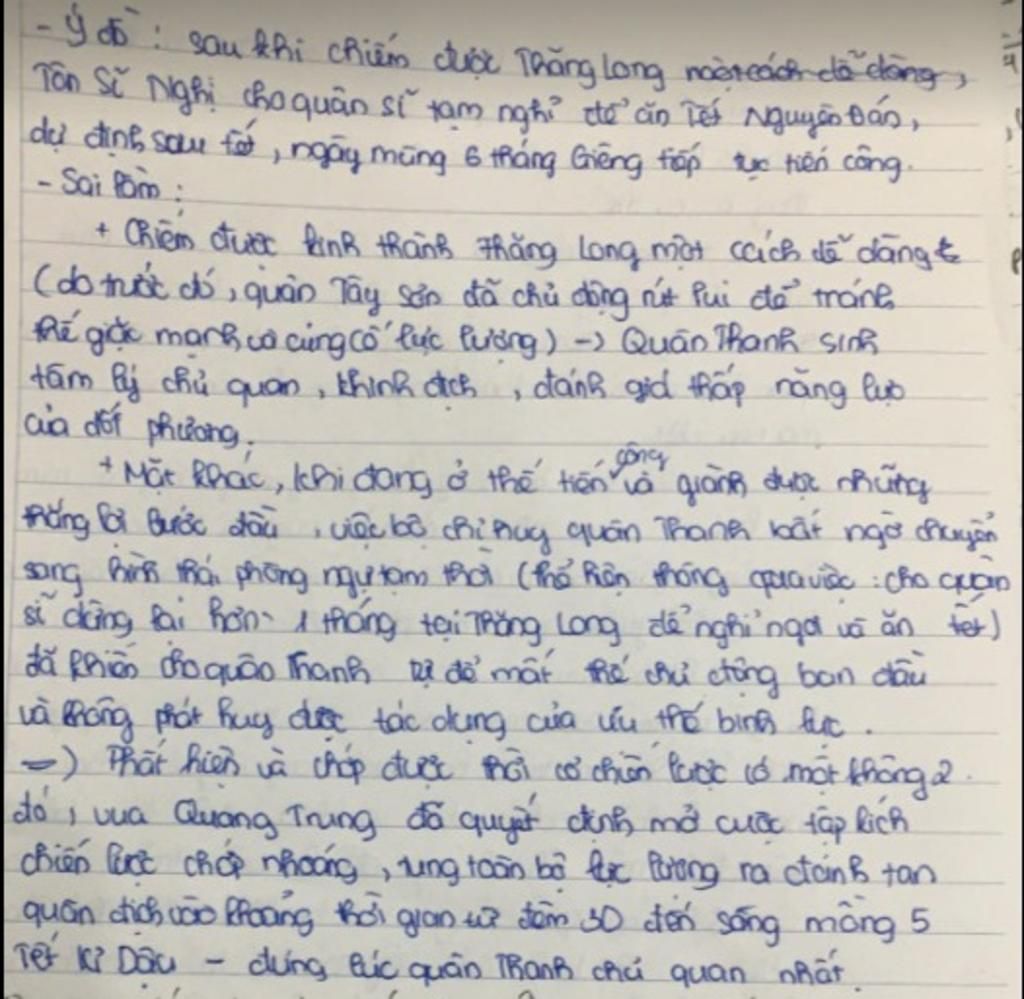 - Ý đồ : sau khi chiếm được Thăng Long một cách dễ dàng,
Tôn Sĩ Nghị cho quân sĩ tạm nghỉ để ăn Tết Nguyên Đán,
dự định sau tết, ngày mùng 6 tháng Giêng tiếp tục tiến công.
- Sai lầm :
+ Chiếm được kinh thành Thăng Long một cách dễ dàng
(do trước đó, quân Tây Sơn đã chủ động rút lui để tránh
thế giặc mạnh và củng cố lực lượng) -> Quân Thanh sinh
tâm lý chủ quan, khinh địch, đánh giá thấp năng lực
của đối phương.
+ Mặt khác, khi đang ở thế tiến công và giành được những
thắng lợi bước đầu, việc bộ chỉ huy quân Thanh bất ngờ chuyển
sang hình thái phòng ngự tạm thời (thể hiện thông qua việc : cho quân
sĩ dừng lại hơn 1 tháng tại Thăng Long để nghỉ ngơi và ăn tết)
đã khiến cho quân Thanh tự để mất thế chủ động ban đầu
và không phát huy được tác dụng của ưu thế binh lực.
=> Phát hiện và chớp được thời cơ chiến lược có một không 2
đó, vua Quang Trung đã quyết định mở cuộc tập kích
chiến lược chớp nhoáng, tung toàn bộ lực lượng ra đánh tan
quân địch vào khoảng thời gian từ đêm 30 đến sáng mồng 5
Tết Kỉ Dậu - đúng lúc quân Thanh chủ quan nhất.